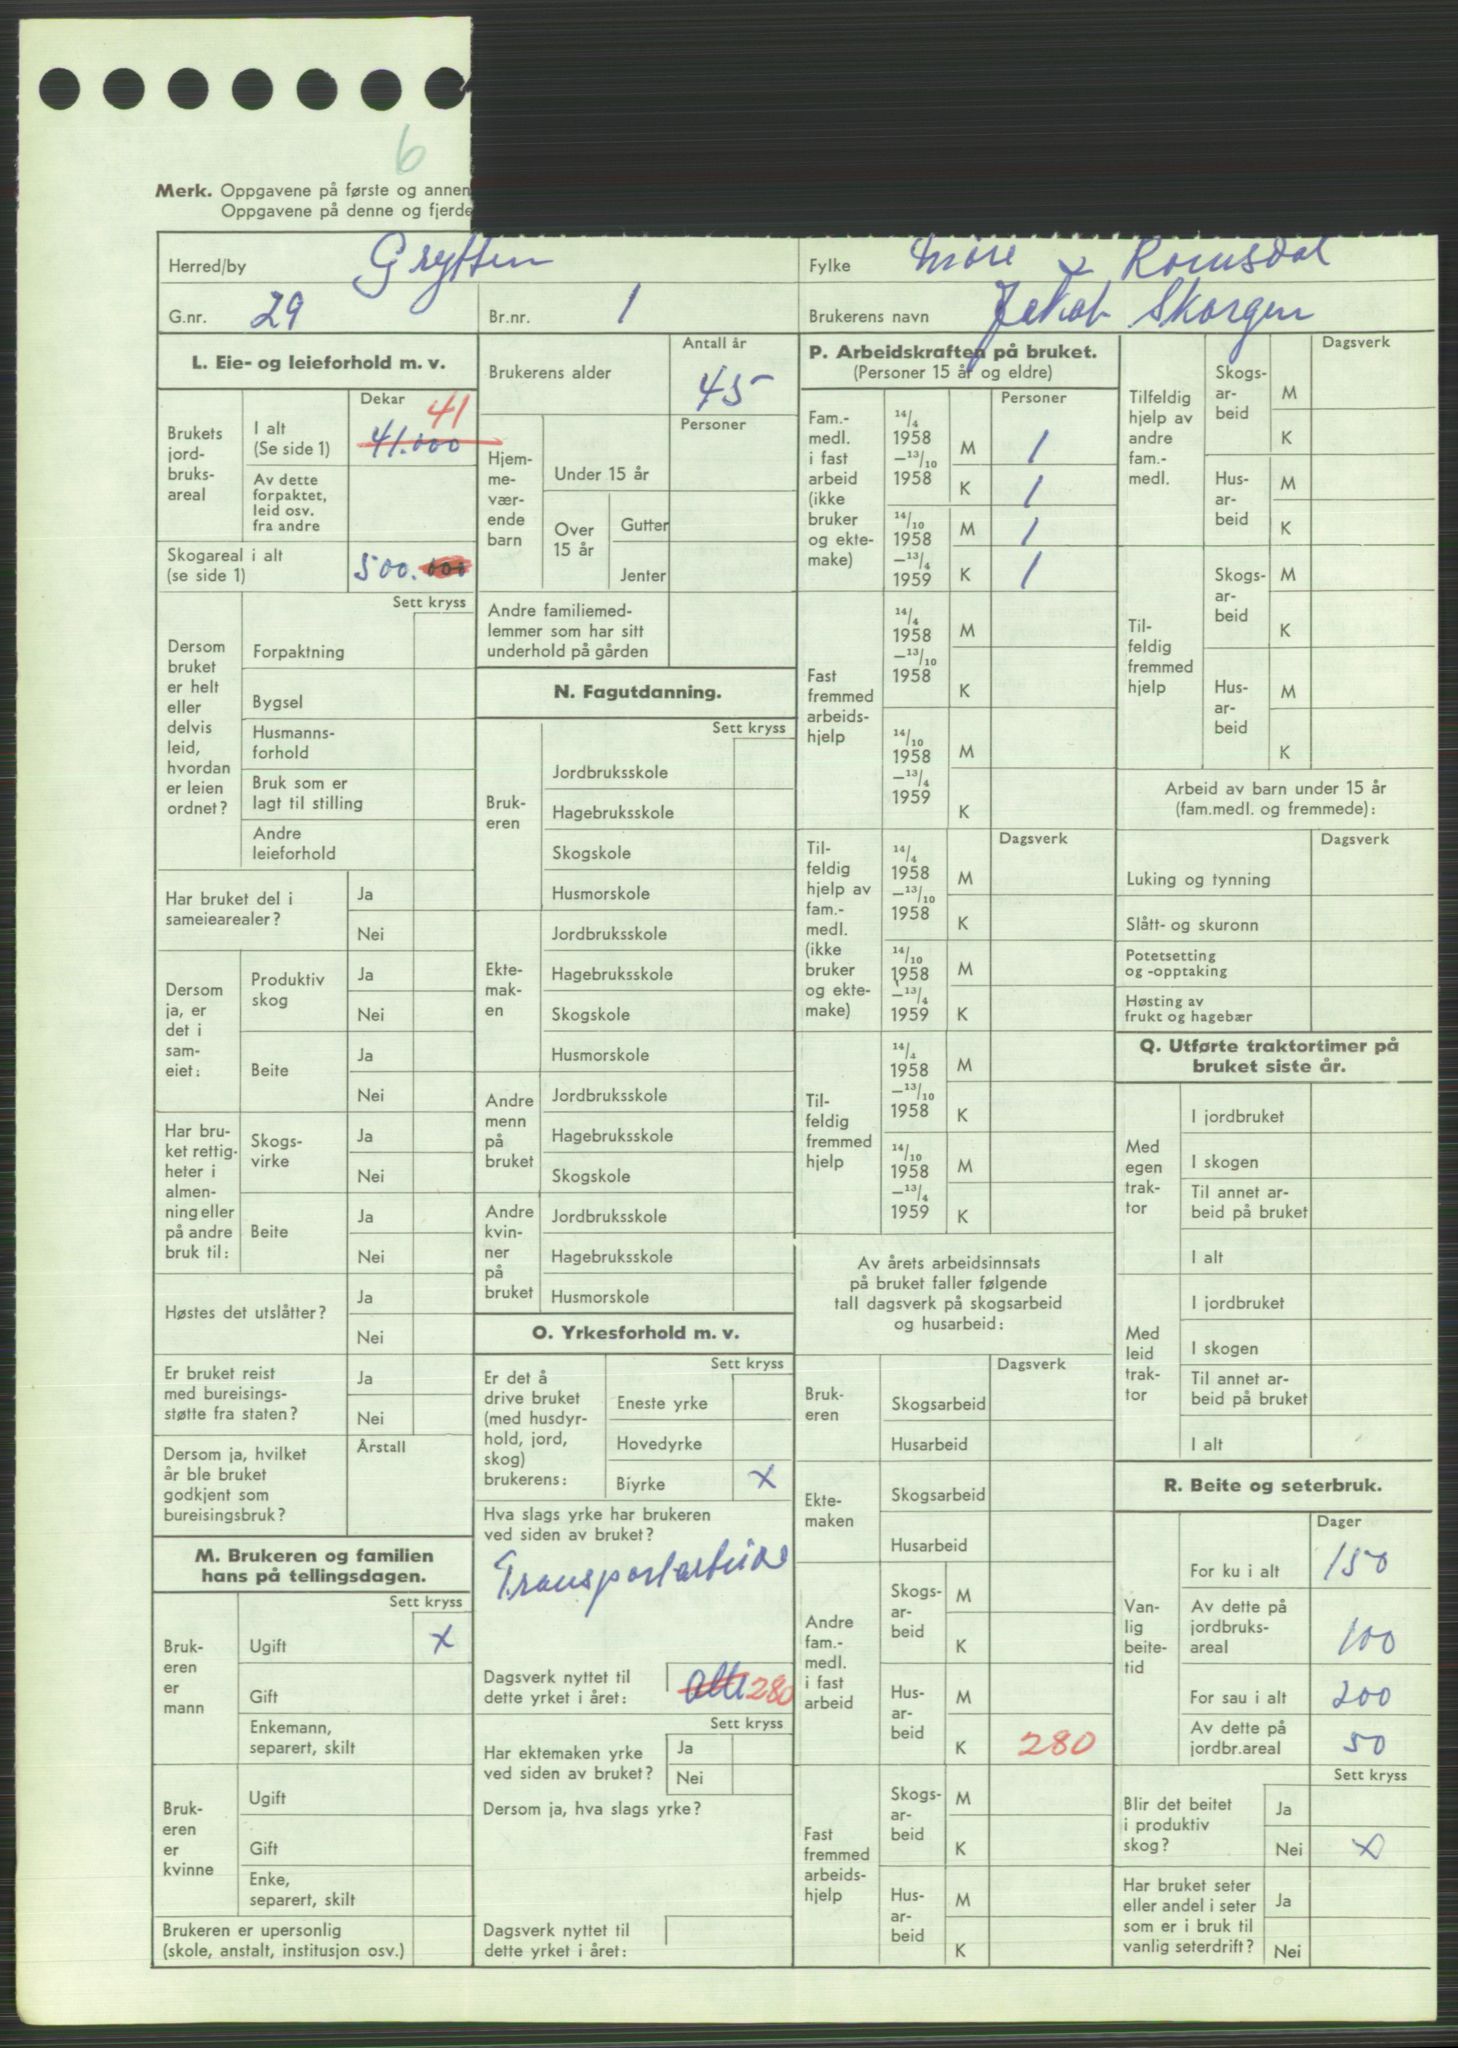 6
Merk. Oppgavene på første og annen
Oppgavene på denne og fjerde
Herred/by Grytten Fylke Møre & Romsdal
G.nr. 29 Br.nr. 1 Brukerens navn Jakob Skorgen
L. Eie- og leieforhold m. v.
Brukets
jord-
bruks-
areal
Dekar
I alt
(Se side 1)
41
41.000
Av dette
forpaktet,
leid osv.
fra andre
Skogareal i alt
(se side 1)
500.000
Sett kryss
Dersom
bruket
er helt
eller
delvis
leid,
hvordan
er leien
ordnet?
Forpaktning
Bygsel
Husmanns-
forhold
Bruk som er
lagt til stilling
Andre
leieforhold
Har bruket del i
sameiearealer?
Ja
Nei
Dersom
ja, er
det i
sam-
eiet:
Produktiv
skog
Ja
Nei
Beite
Ja
Nei
Har bru-
ket rettig-
heter i
almen-
ning eller
på andre
bruk til:
Skogs-
virke
Ja
Nei
Beite
Ja
Nei
Høstes det utslåtter?
Ja
Nei
Er bruket reist
med bureisings-
støtte fra staten?
Ja
Nei
Dersom ja, hvilket
år ble bruket
godkjent som
bureisingsbruk?
Årstall
M. Brukeren og familien
hans på tellingsdagen.
Sett kryss
Bruk-
eren
er
mann
Ugift x
Gift
Enkemann,
separert, skilt
Bruk-
eren
er
kvinne
Ugift
Gift
Enke,
separert, skilt
Brukeren er upersonlig
(skole, anstalt, institusjon osv.)
Antall år
Brukerens alder 45
Personer
Hjem-
me-
vær-
ende
barn
Under 15 år
Over
15 år
Gutter
Jenter
Andre familiemed-
lemmer som har sitt
underhold på gården
N. Fagutdanning.
Sett kryss
Bruk-
eren
Jordbruksskole
Hagebruksskole
Skogskole
Husmorskole
Ekte-
mak-
en
Jordbruksskole
Hagebruksskole
Skogskole
Husmorskole
Andre
menn
på
bruket
Jordbruksskole
Hagebruksskole
Skogskole
Andre
kvin-
ner
på
bruket
Jordbruksskole
Hagebruksskole
Husmorskole
O. Yrkesforhold m. v.
Sett kryss
Er det å
drive bruket
(med husdyr-
hold, jord,
skog)
brukerens:
Eneste yrke
Hovedyrke
Biyrke x
Hva slags yrke har brukeren
ved siden av bruket?
Transportarbeide
Dagsverk nyttet til
dette yrket i året: 280
Sett kryss
Har ektemaken yrke
ved siden av bruket?
Ja
Nei
Dersom ja, hva slags yrke?
Dagsverk nyttet til
dette yrket i året:
P. Arbeidskraften på bruket.
(Personer 15 år og eldre)
Personer
Fam.-
medl.
i fast
arbeid
(ikke
bruker
og ekte-
make)
14/4
1958
—13/10
1958
M 1
K 1
14/10
1958
—13/4
1959
M 1
K 1
Fast
fremmed
arbeids-
hjelp
14/4
1958
—13/10
1958
M
K
14/10
1958
—13/4
1959
M
K
Dagsverk
Til-
feldig
hjelp av
fam.-
medl.
(ikke
bruker
og ekte-
make)
14/4
1958
—13/10
1958
M
K
14/10
1958
—13/4
1959
M
K
Til-
feldig
fremmed
hjelp
14/4
1958
—13/10
1958
M
K
14/10
1958
—13/4
1959
M
K
Av årets arbeidsinnsats
på bruket faller følgende
tall dagsverk på skogsarbeid
og husarbeid:
Dagsverk
Bruk-
eren
Skogsarbeid
Husarbeid
Ekte-
maken
Skogsarbeid
Husarbeid
Andre
fam.-
medl.
i fast
arbeid
Skogs-
ar-
beid
M
K
Hus-
ar-
beid
M
K 280
Fast
fremmed
arbeids-
hjelp
Skogs-
ar-
beid
M
K
Hus-
ar-
beid
M
K
Dagsverk
Tilfeldig
hjelp av
andre
fam.-
medl.
Skogs-
ar-
beid
M
K
Hus-
ar-
beid
M
K
Til-
feldig
fremmed
hjelp
Skogs-
ar-
beid
M
K
Hus-
ar-
beid
M
K
Arbeid av barn under 15 år
(fam.medl. og fremmede):
Dagsverk
Luking og tynning
Slått- og skuronn
Potetsetting
og -opptaking
Høsting av
frukt og hagebær
Q. Utførte traktortimer på
bruket siste år.
Med
egen
trak-
tor
I jordbruket
I skogen
Til annet ar-
beid på bruket
I alt
Med
leid
trak-
tor
I jordbruket
I skogen
Til annet ar-
beid på bruket
I alt
R. Beite og seterbruk.
Dager
Van-
lig
beite-
tid
For ku i alt 150
Av dette på
jordbruks-
areal 100
For sau i alt 200
Av dette på
jordbr.areal 50
Sett kryss
Blir det beitet
i produktiv
skog?
Ja
Nei x
Har bruket seter
eller andel i seter
som er i bruk til
vanlig seterdrift?
Ja
Nei